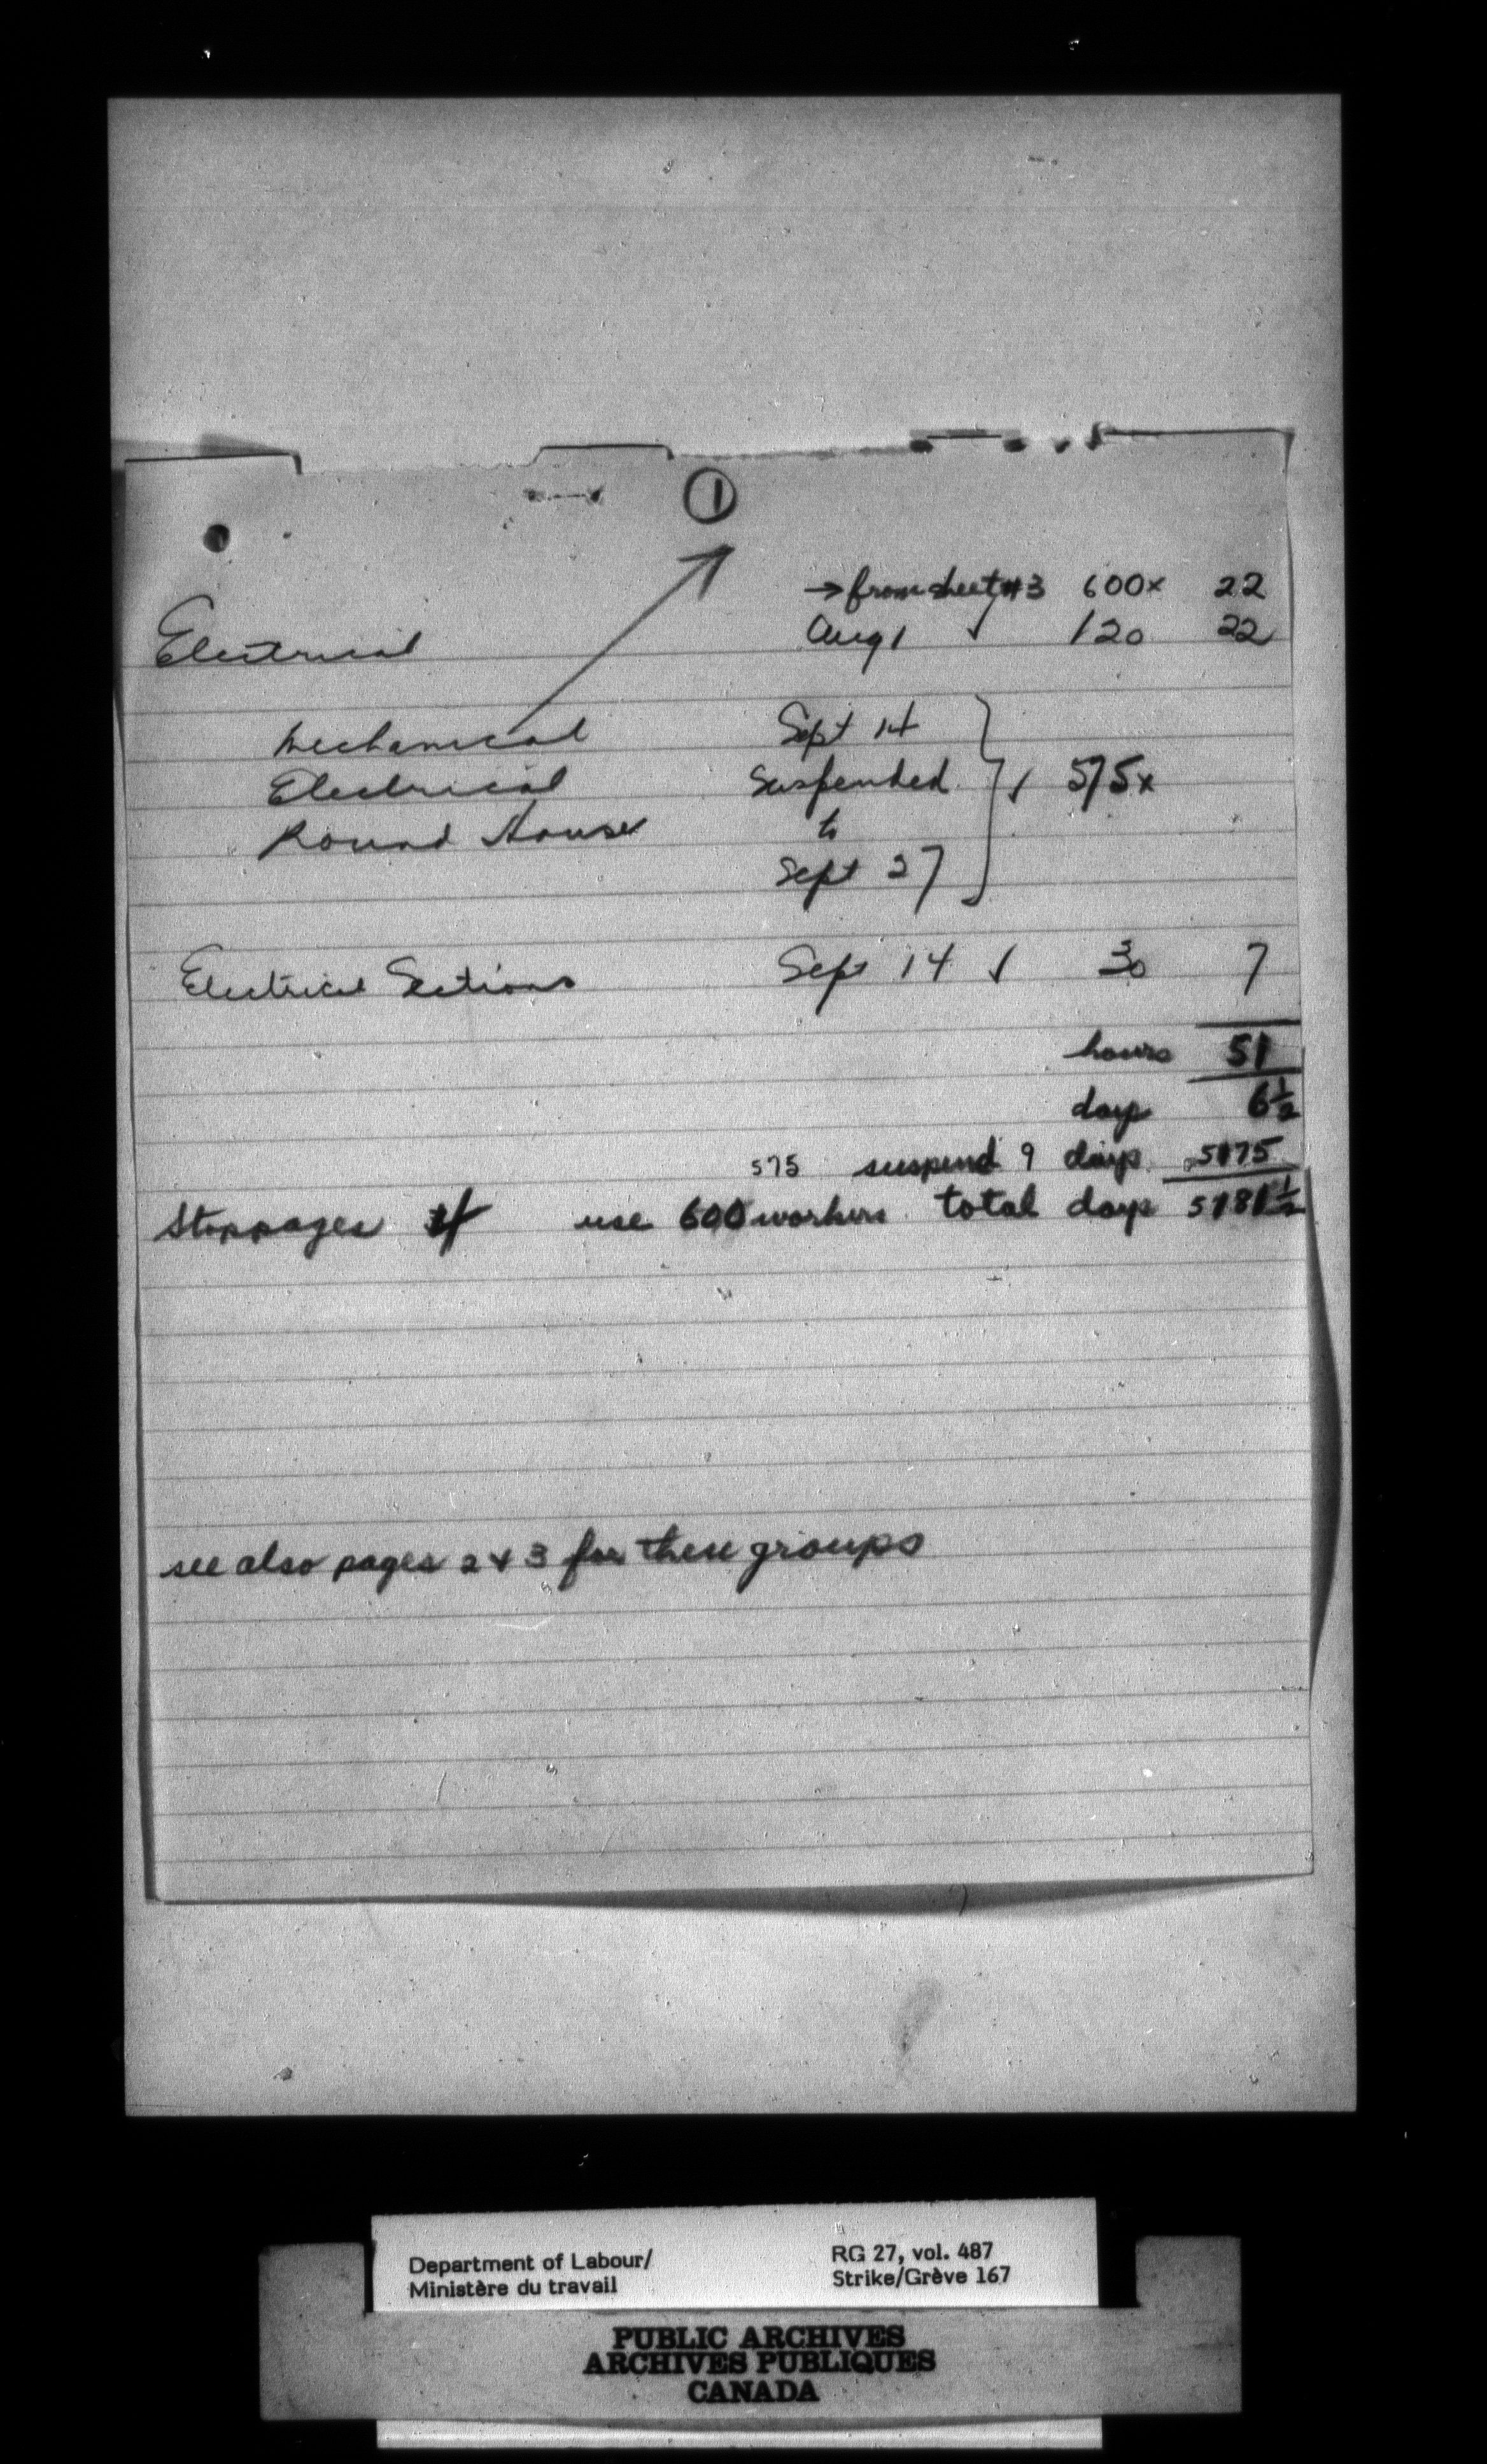 1
→ from sheet #3 600x 22
Electrical Aug 1 ✓ 120 22
Mechanical Sept 14
Electrical Suspended ✓ 575x
Round House to
Sept 27
Electrical Sections Sept 14 ✓ 30 7
hours 51
days 6½
575 suspend 9 days 5175
Stoppages 4 use 600 workers total days 5181½
see also pages 2 & 3 for these groups
Department of Labour/ RG 27, vol. 487
Ministère du travail Strike/Grève 167
PUBLIC ARCHIVES
ARCHIVES PUBLIQUES
CANADA